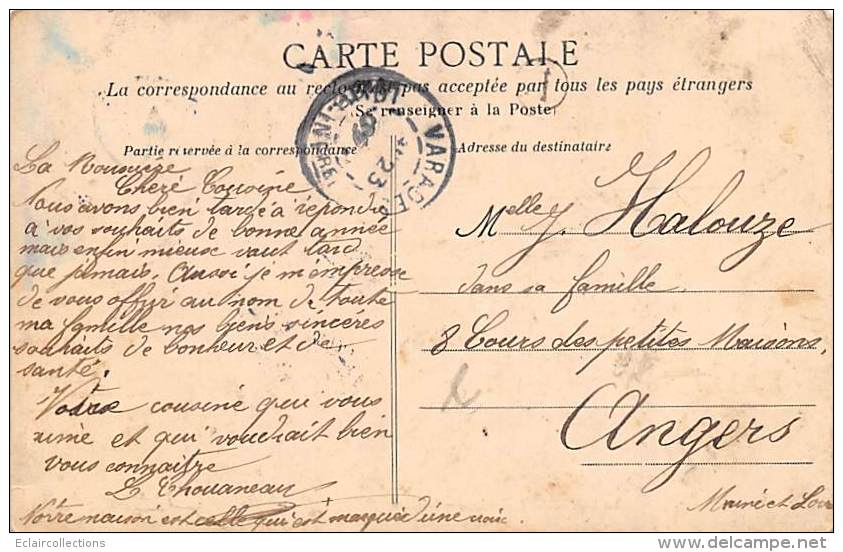 CARTE POSTALE
La correspondance au recto n'est pas acceptée par tous les pays étrangers
(Se renseigner à la Poste)
Partie réservée à la correspondance
Adresse du destinataire
VARADES
23
La
Chère Cousine
Nous avons bien tardé à répondre
à vos souhaits de bonne année
mais enfin mieux vaut tard
que jamais. Aussi je m'empresse
de vous offrir au nom de toute
ma famille nos biens sincères
souhaits de bonheur et de
santé.
Votre cousine qui vous
aime et qui voudrait bien
vous connaitre
L Thouaneau
Notre maison est celle qui est marquée d'une croix
Melle J. Halouze
dans sa famille
8 Cours des petites Maisons,
Angers
Maine et Loire
Eclaircollections
www.delcampe.net